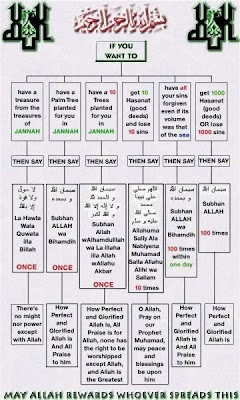 بسم الله الرحمن الرحيم
IF YOU
WANT TO
have a
treasure
from the
treasures
of
JANNAH
have a
Palm Tree
planted
for you
in
JANNAH
have a
10
Trees
planted
for you in
JANNAH
get 10
Hasanat
(good
deeds)
and lose
10 sins
have all
your sins
forgiven
even if its
volume
was that
of the sea
get 1000
Hasanat
(good
deeds)
OR lose
1000 sins
THEN SAY
THEN SAY
THEN SAY
THEN SAY
THEN SAY
THEN SAY
لا حول
ولا قوة
إلا بالله
La Hawla
Wala
Quwata
illa
Billah
ONCE
سبحان الله
و بحمده
Subhan
ALLAH
wa
Bihamdih
سبحان الله
و الحمد لله
Subhan
Allah
wAlhamdulilah
wa La illaha
illa Allah
wAllahu
Akbar
ONCE
محمد
Allahuma
Sally Ala
Nabiyena
Muhamad
Salla Allahu
Alihi wa
Sallam
10 times
سبحان الله
و بحمده
Subhan
ALLAH
wa
Bihamdih
100 times
within
one day
سبحان الله
Subhan
ALLAH
100
times
There's
no might
nor power
except
with Allah
How
Perfect
and
Glorified
Allah is
And All
Praise to
him
How Perfect
and Glorified
Allah is, All
Praise is for
Allah, none has
the right to be
worshipped
except Allah,
and Allah is
the Greatest
O Allah,
Pray on
our
Prophet
Muhamad,
may peace
and
blessings
be upon
him
How
Perfect
and
Glorified
Allah is
And All
Praise to
him
How
Perfect
and
Glorified
Allah is
MAY ALLAH REWARDS WHOEVER SPREADS THIS